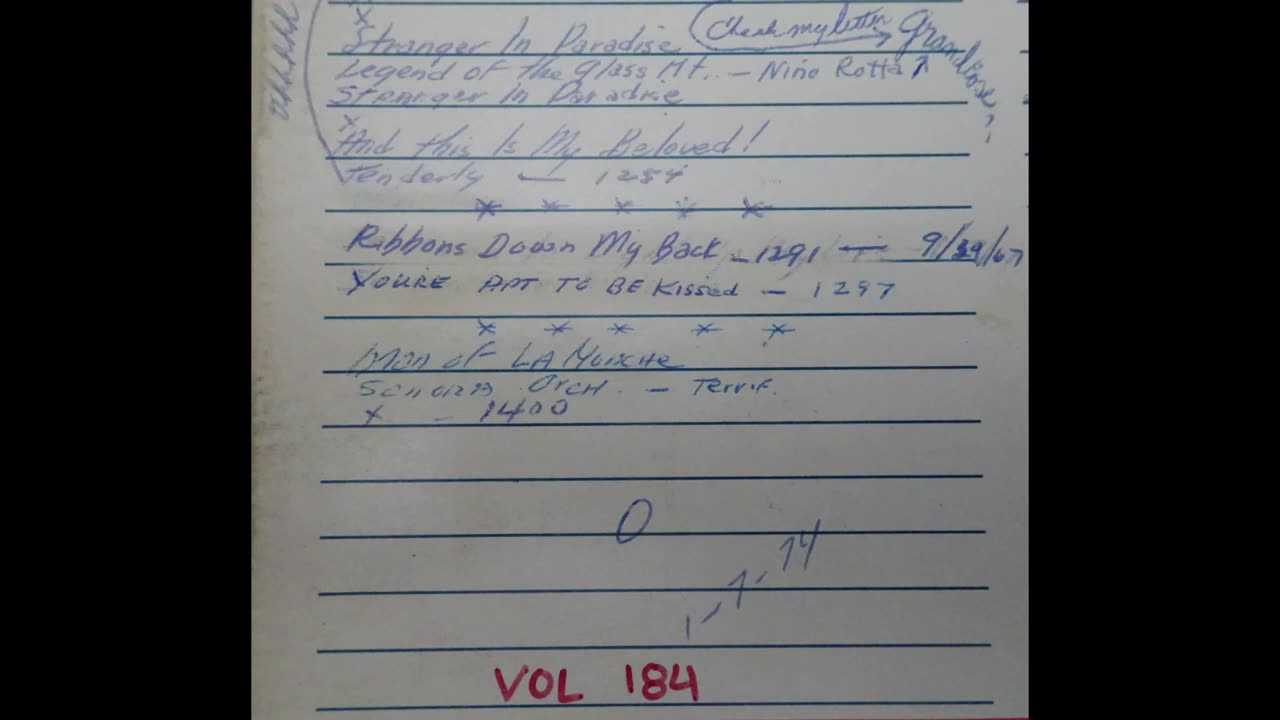 x
Stranger In Paradise
Check my letter
Grandiose
Legend of the Glass Mt. - Nino Rotta
Stranger In Paradise
x
And this Is My Beloved!
Tenderly — 1254
* * * * *
Ribbons Down My Back - 1291 — 9/29/67
YOU'RE APT TO BE Kissed - 1297
* * * * *
Man of LA
Orch. - Terrif.
x - 1400
0
1-7-74
VOL 184